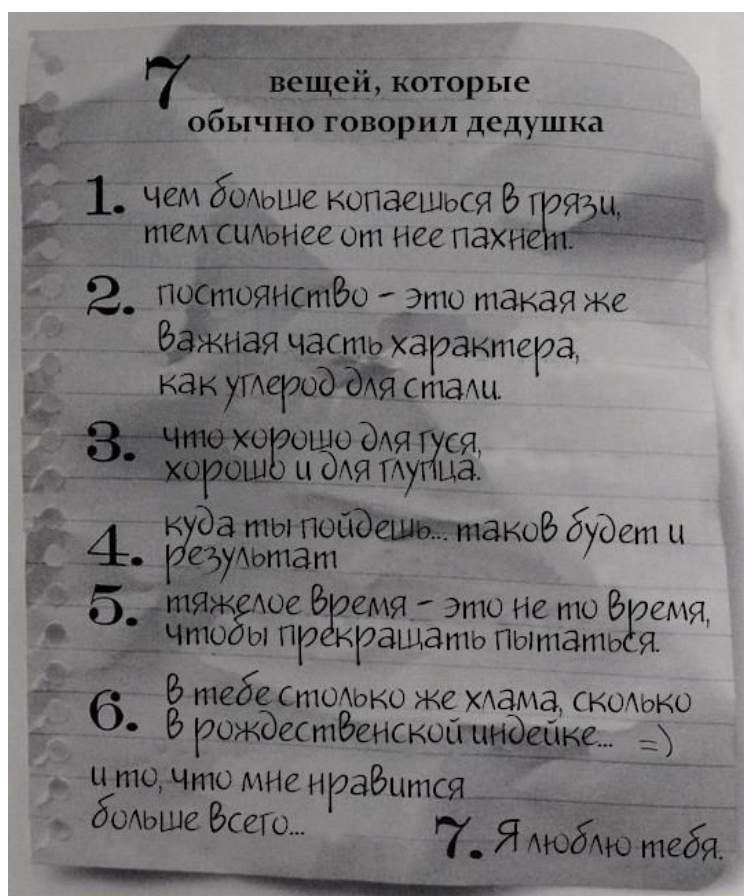 7 вещей, которые
обычно говорил дедушка
1. чем больше копаешься в грязи,
тем сильнее от нее пахнет.
2. постоянство – это такая же
важная часть характера,
как углерод для стали.
3. что хорошо для гуся,
хорошо и для глупца.
4. куда ты пойдешь... таков будет и
результат
5. тяжелое время – это не то время,
чтобы прекращать пытаться.
6. в тебе столько же хлама, сколько
в рождественской индейке... =)
и то, что мне нравится
больше всего...
7. Я люблю тебя.